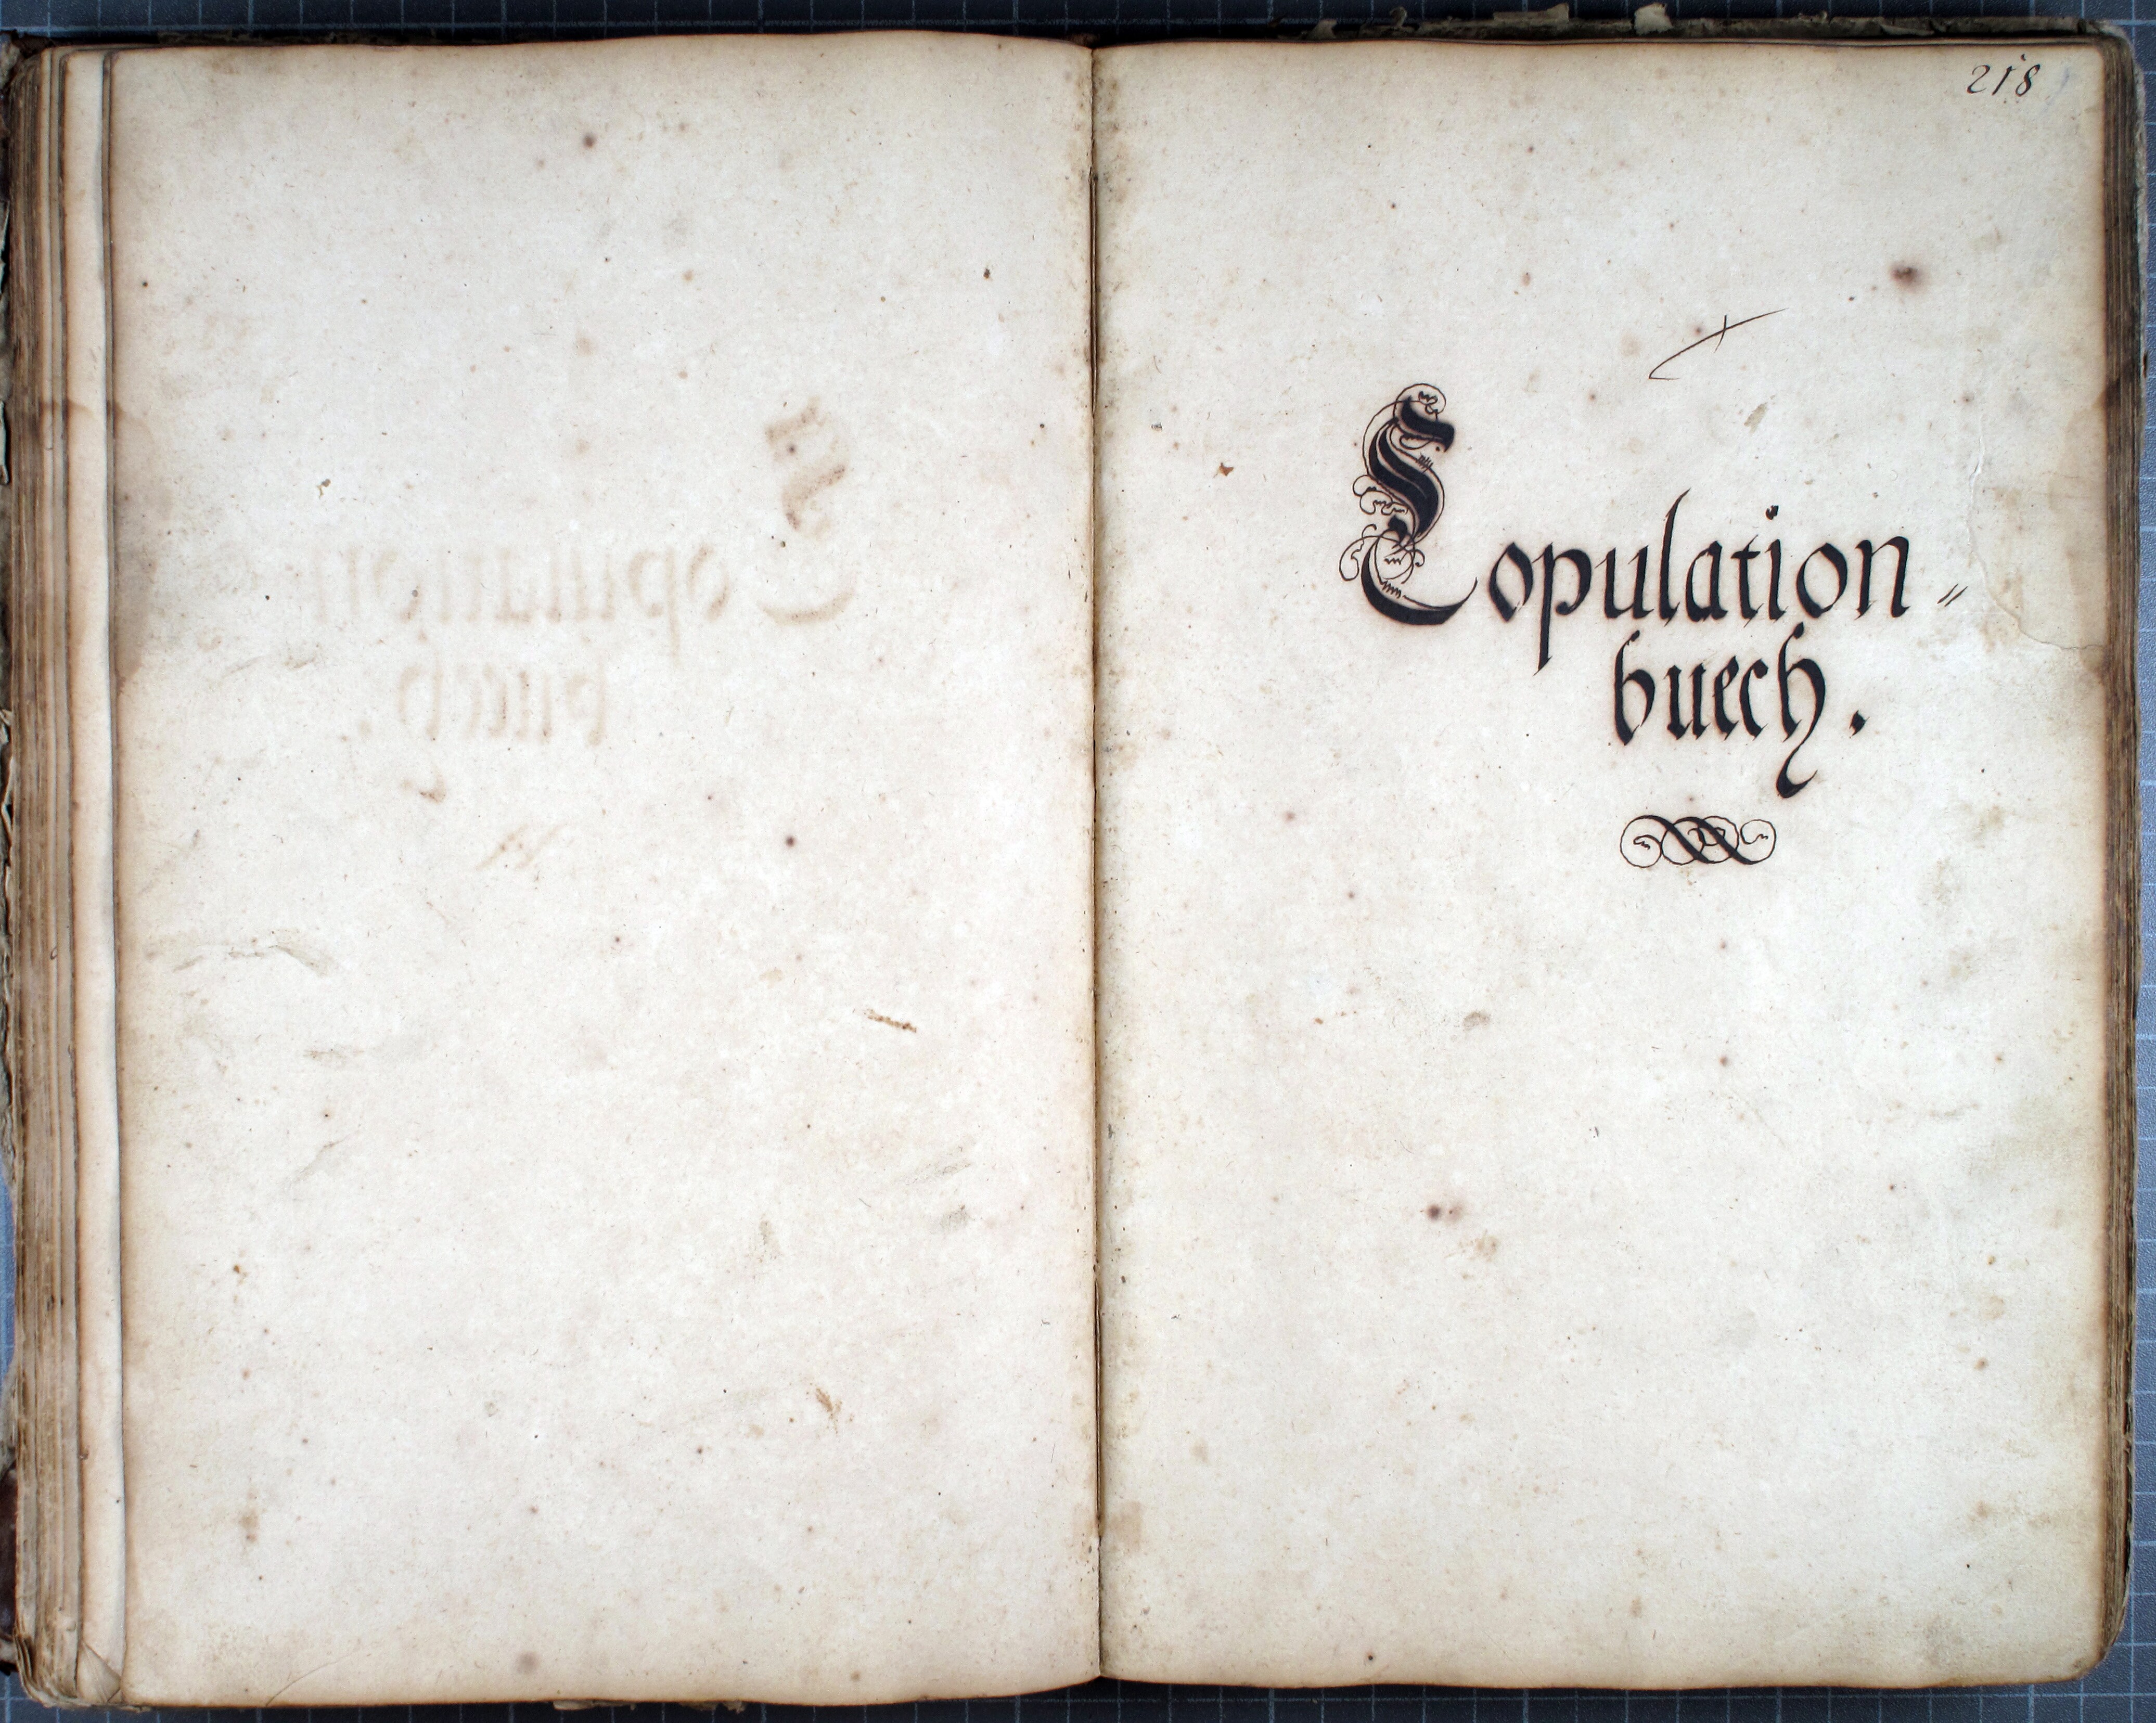 218
Copulation„
buech.